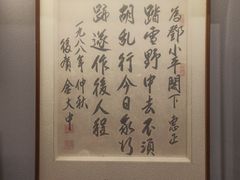 為鄧小平閣下 惠正
踏雪野中去不須
胡亂行今日我行
跡遂作後人程
一九八八年仲秋
後廣 金大中